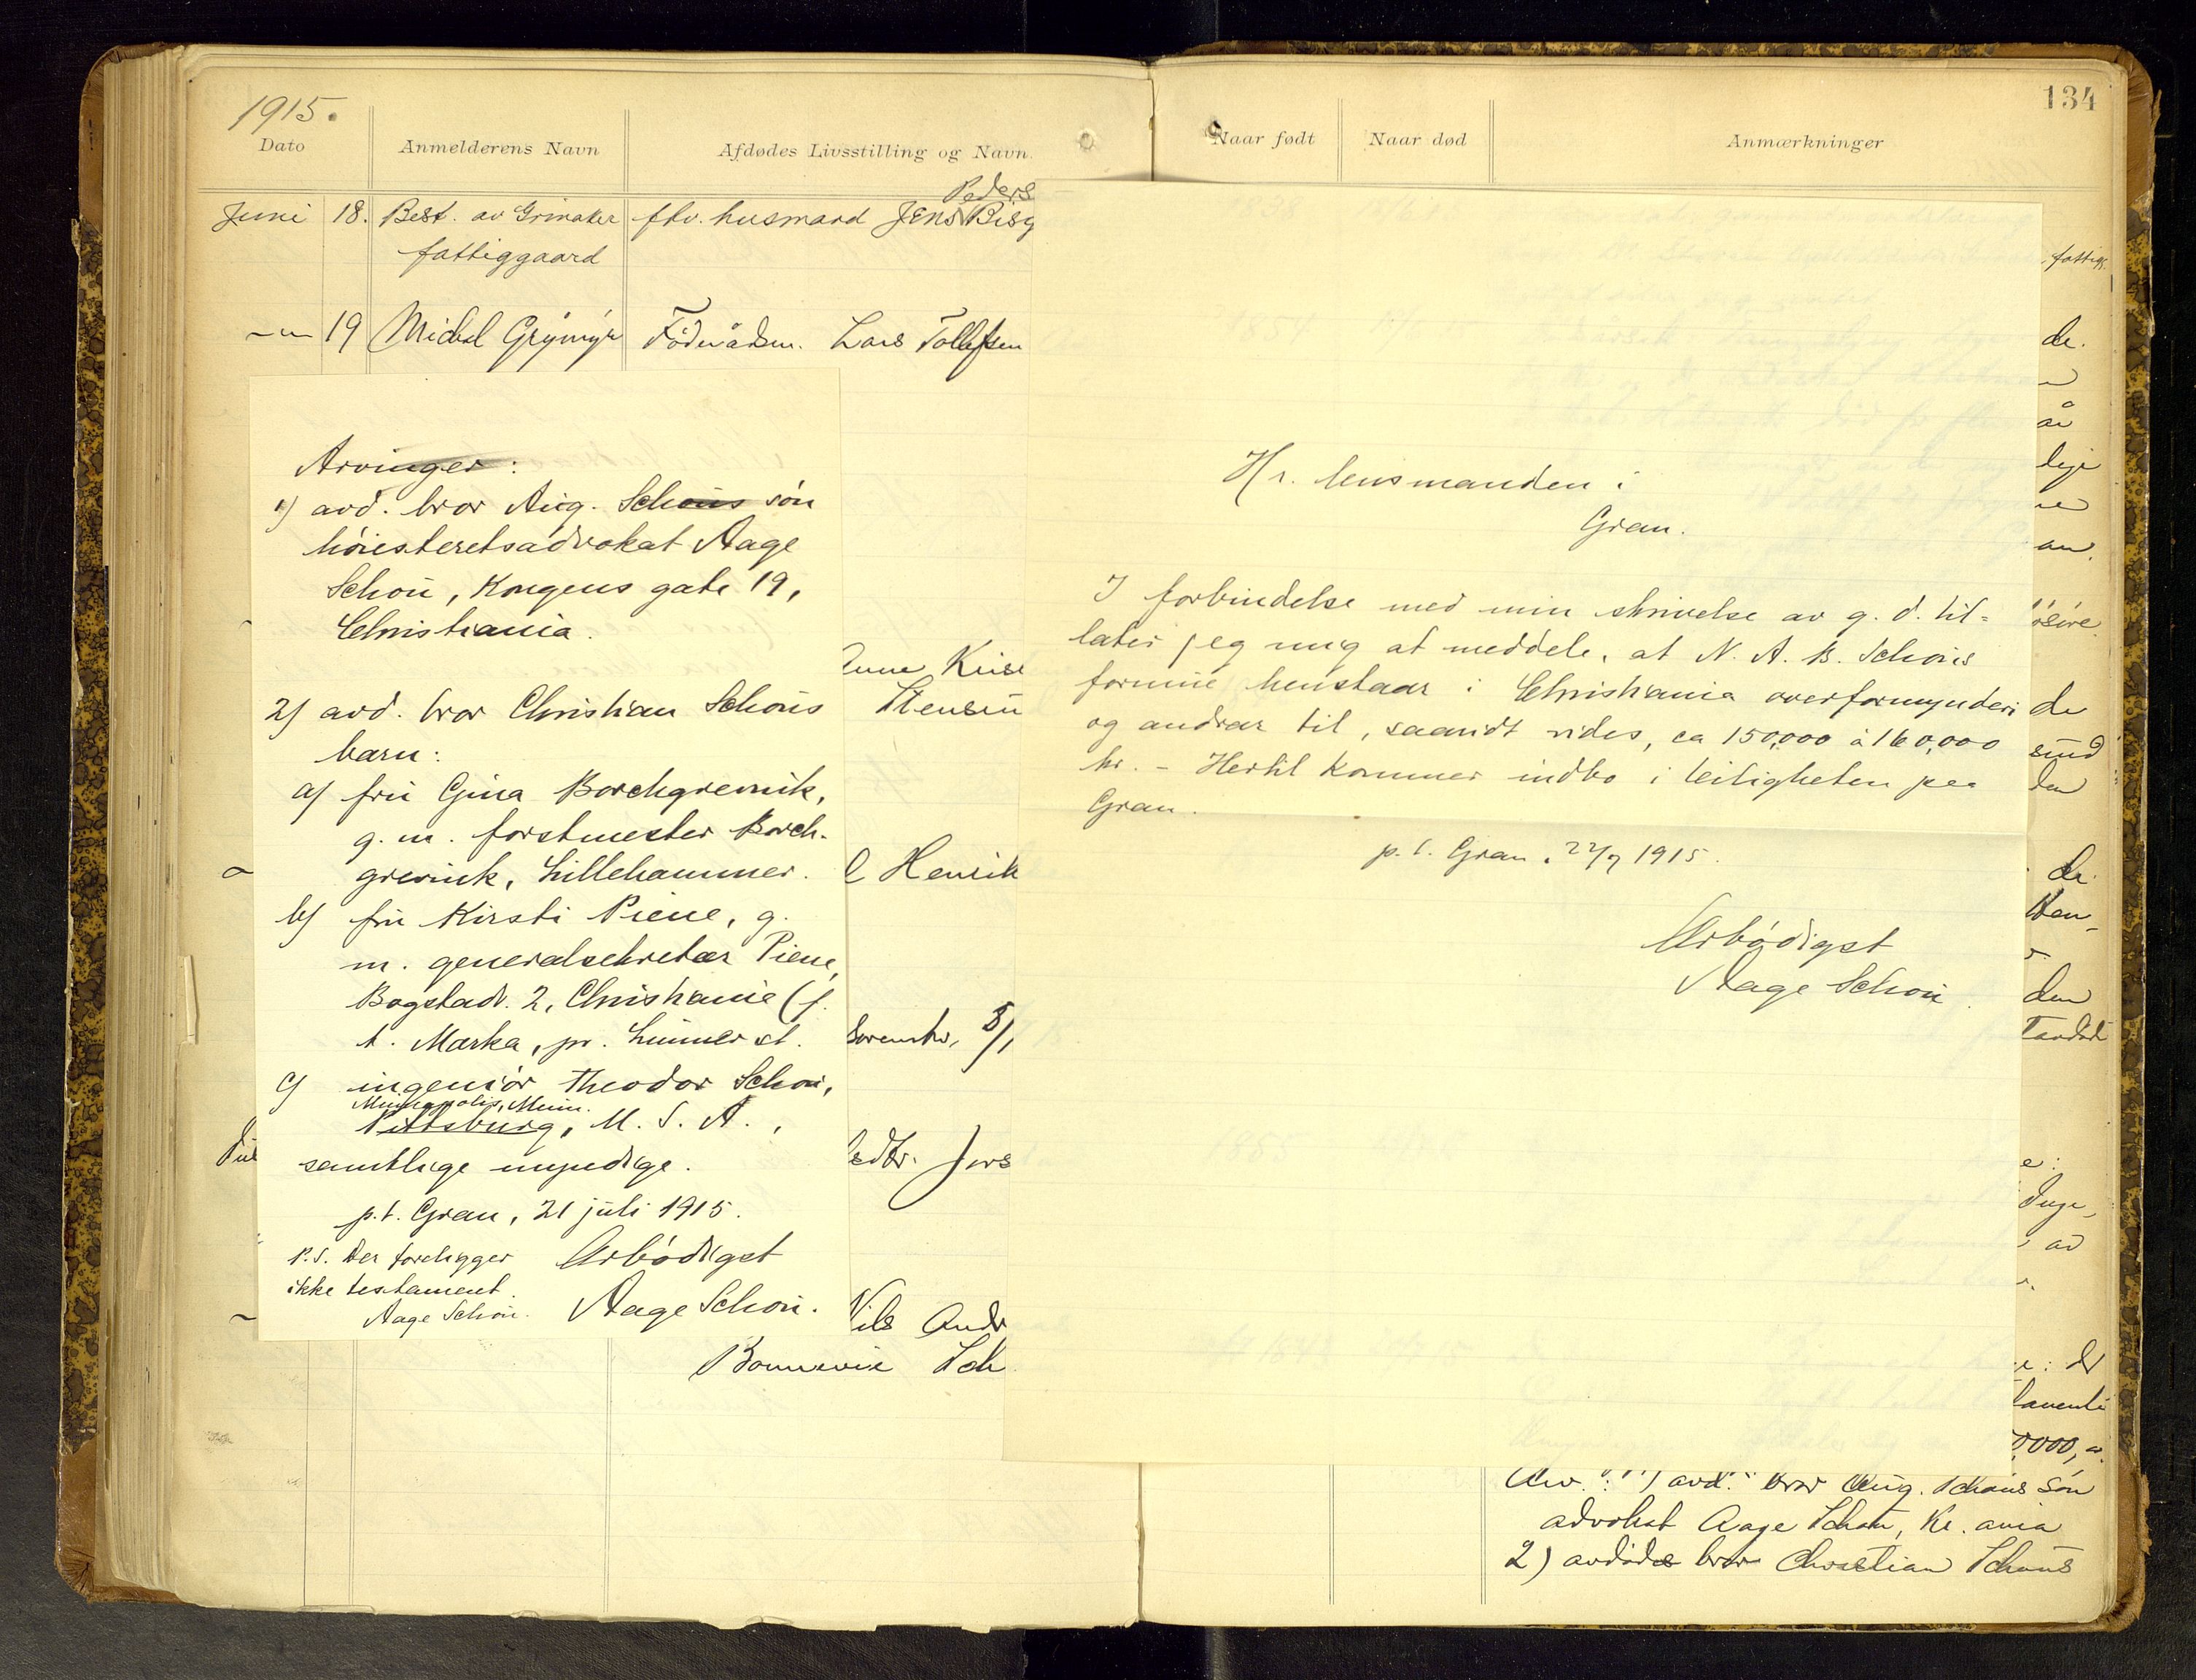 1915.
134
Dato
Anmelderens Navn
Afdødes Livsstilling og Navn.
Naar født
Naar død
Anmærkninger
Peders
Juni 18. Best. av Grinaker fhv. husmand Jens Bisg
fattiggaard
fattigg.
-"- 19 Michel Grymyr Föderådsm. Lars Tollefsen
de.
Arvinger:
1) avd. bror Aug. Schøus søn
høiesteretsadvokat Aage
Schou, Kongens gate 19,
Christiania.
2) avd. bror Christian Schous
barn:
a) fru Gina Borchgrevink,
g. m. forstmester Borch-
grevink, Lillehammer.
b) fru Kirsti Piene, g.
m. generalsekretær Piene,
Bogstadv. 2, Christiania (p.
t. Marka, pr. Lunner st.
c) ingeniør Theodor Schou,
Minneapolis, Minn.
Pittsburg, U. S. A.,
samtlige myndige.
p.t. Gran, 21 juli 1915.
Ærbødigst
Aage Schou.
P.S. Der foreligger
ikke testament.
Aage Schou.
Stensen
Henrik
5/1
Jul
Nils Andr
Bonnevie Sch
Hr. lensmanden i
Gran.
I forbindelse med min skrivelse av g. d. til-
later jeg mig at meddele, at N. A. B. Schous
formue henstaar i Christiania overformynderi
og andrar til, saavidt vides, ca 150,000 à 160,000
kr. - Hertil kommer indbo i leiligheten paa
Gran.
p. t. Gran, 22/7 1915.
Ærbødigst
Aage Schou.
de
den
de
den
av
000,
Arv.: 1) avd. bror Aug. Schous søn
advokat Aage Schou, Kr.ania
2) avdøde bror Christian Schous